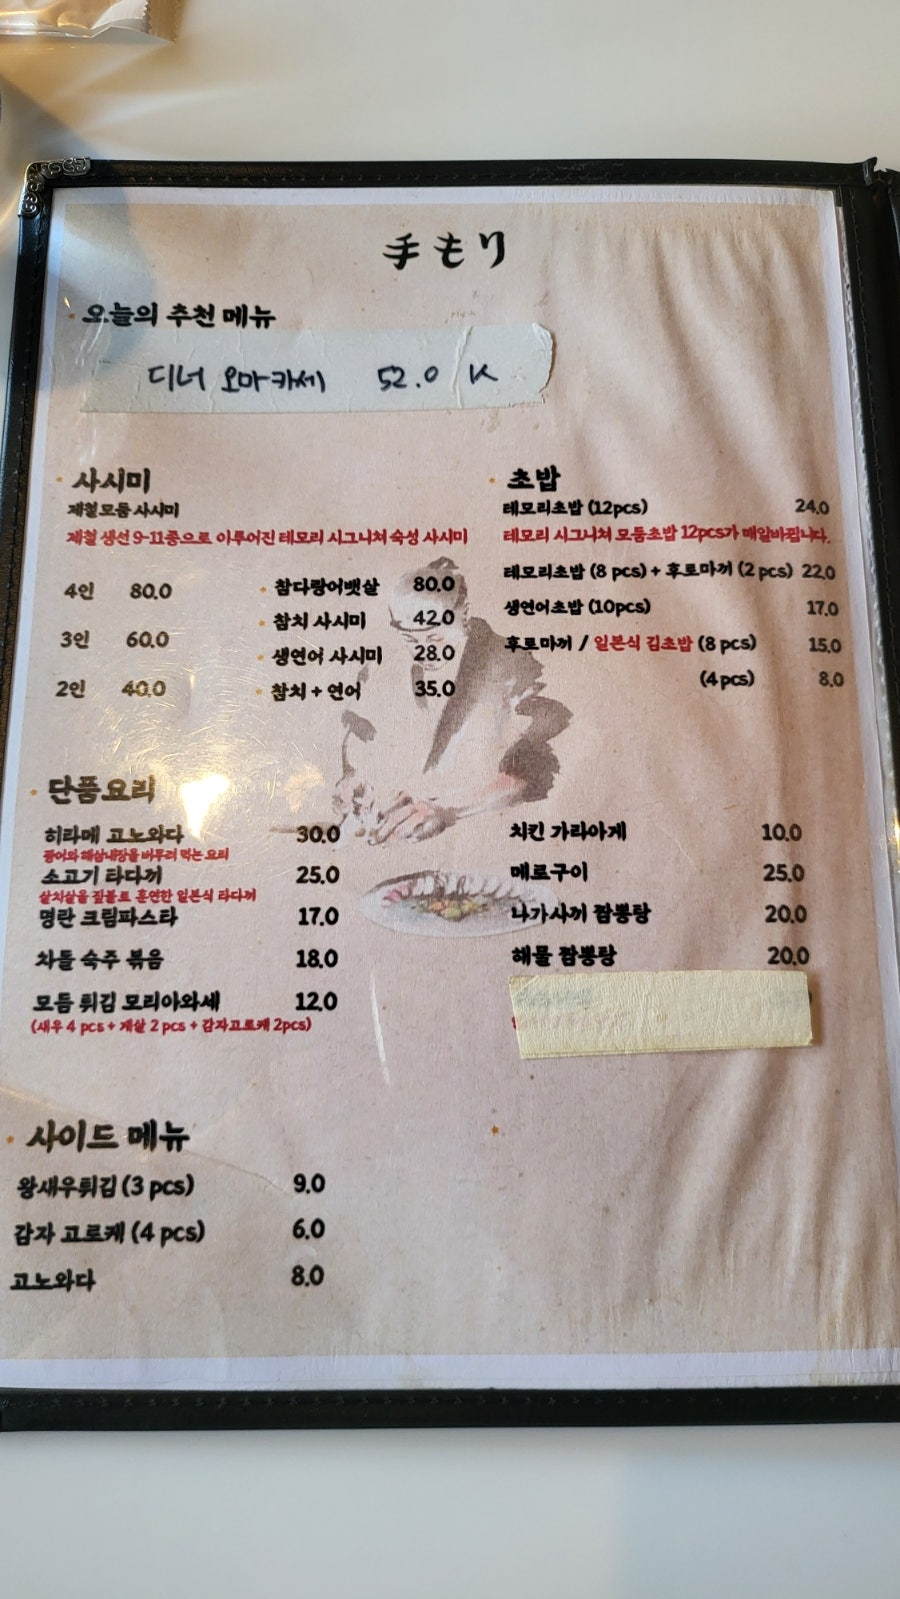 手もり
오늘의 추천 메뉴
디너 오마카세 52.0 K
사시미
제철모둠 사시미
제철 생선 9-11종으로 이루어진 테모리 시그니처 숙성 사시미
4인 80.0
3인 60.0
2인 40.0
참다랑어뱃살 80.0
참치 사시미 42.0
생연어 사시미 28.0
참치 + 연어 35.0
초밥
테모리초밥 (12pcs) 24.0
테모리 시그니쳐 모둠초밥 12pcs가 매일바뀝니다.
테모리초밥 (8 pcs) + 후토마끼 (2 pcs) 22.0
생연어초밥 (10pcs) 17.0
후토마끼 / 일본식 김초밥 (8 pcs) 15.0
(4pcs) 8.0
단품요리
히라메 고노와다 30.0
광어와 해삼내장을 버무려 먹는 요리
소고기 타다끼 25.0
살치살을 짚불로 훈연한 일본식 타다끼
명란 크림파스타 17.0
차돌 숙주 볶음 18.0
모듬 튀김 모리아와세 12.0
(새우 4 pcs + 게살 2 pcs + 감자고로케 2pcs)
치킨 가라아게 10.0
메로구이 25.0
나가사끼 짬뽕탕 20.0
해물 짬뽕탕 20.0
사이드 메뉴
왕새우튀김 (3 pcs) 9.0
감자 고로케 (4 pcs) 6.0
고노와다 8.0